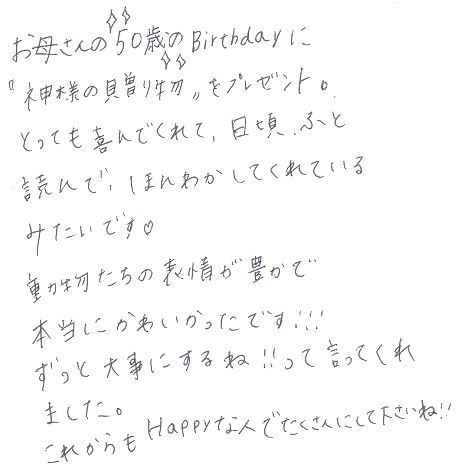 お母さんの50歳のBirthdayに
"神様の贈り物"をプレゼント。
とっても喜んでくれて、日頃、ふと
読んで、ほんわかしてくれている
みたいです♡
動物たちの表情が豊かで
本当にかわいかったです!!!
ずっと大事にするね!!って言ってくれ
ました。
これからもHappyな人でたくさんにして下さいね!!